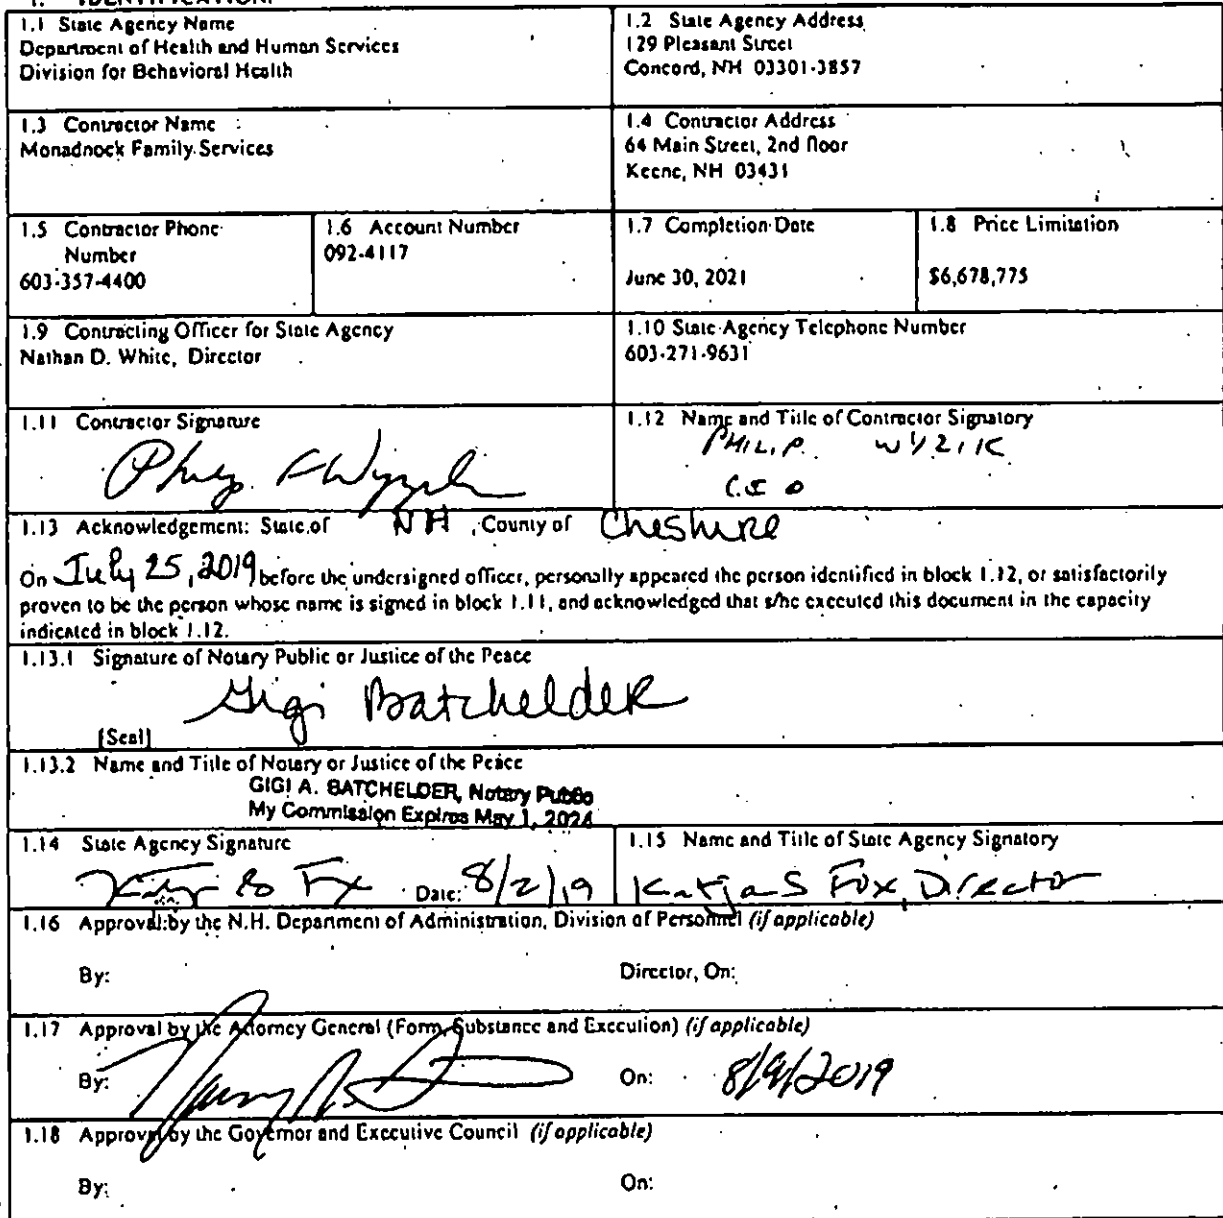 1. IDENTIFICATION.
1.1 State Agency Name
Department of Health and Human Services
Division for Behavioral Health
1.2 State Agency Address
129 Pleasant Street
Concord, NH 03301-3857
1.3 Contractor Name
Monadnock Family Services
1.4 Contractor Address
64 Main Street, 2nd floor
Keene, NH 03431
1.5 Contractor Phone
Number
603-357-4400
1.6 Account Number
092-4117
1.7 Completion Date
June 30, 2021
1.8 Price Limitation
$6,678,775
1.9 Contracting Officer for State Agency
Nathan D. White, Director
1.10 State Agency Telephone Number
603-271-9631
1.11 Contractor Signature
1.12 Name and Title of Contractor Signatory
PHILIP WYZIK
CEO
1.13 Acknowledgement: State of NH, County of Cheshire
On July 25, 2019 before the undersigned officer, personally appeared the person identified in block 1.12, or satisfactorily
proven to be the person whose name is signed in block 1.11, and acknowledged that s/he executed this document in the capacity
indicated in block 1.12.
1.13.1 Signature of Notary Public or Justice of the Peace
Gigi Batchelder
[Seal]
1.13.2 Name and Title of Notary or Justice of the Peace
GIGI A. BATCHELDER, Notary Public
My Commission Expires May 1, 2024
1.14 State Agency Signature
Date: 8/2/19
1.15 Name and Title of State Agency Signatory
Katja S Fox, Director
1.16 Approval by the N.H. Department of Administration, Division of Personnel (if applicable)
By:
Director, On:
1.17 Approval by the Attorney General (Form, Substance and Execution) (if applicable)
By:
On: 8/9/2019
1.18 Approval by the Governor and Executive Council (if applicable)
By:
On: